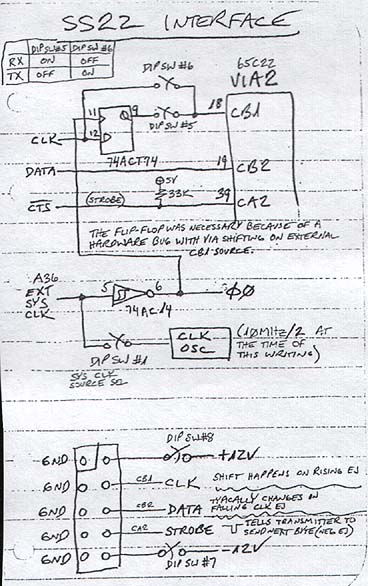 SS22 INTERFACE
DIPSW#5 DIPSW#6
RX ON OFF
TX OFF ON
DIPSW #6
65C22
VIA2
11
Q 9
18
CB1
CLK
12 D
DIPSW #5
74ACT74
DATA
19
CB2
5V
CTS
(STROBE)
33K
39
CA2
THE FLIP-FLOP WAS NECESSARY BECAUSE OF A
HARDWARE BUG WITH VIA SHIFTING ON EXTERNAL
CB1 SOURCE.
A36
EXT
SYS
CLK
5
6
Ø0
74AC14
DIPSW #1
SYS CLK
SOURCE SEL
CLK
OSC
(10MHz/2 AT
THE TIME OF
THIS WRITING)
DIPSW#8
GND +12V
GND CB1 CLK SHIFT HAPPENS ON RISING EJ
GND CB2 DATA TYPICALLY CHANGES ON
FALLING CLK EJ
GND CA2 STROBE TELLS TRANSMITTER TO
SEND NEXT BYTE (NEG EJ)
GND -12V
DIPSW #7